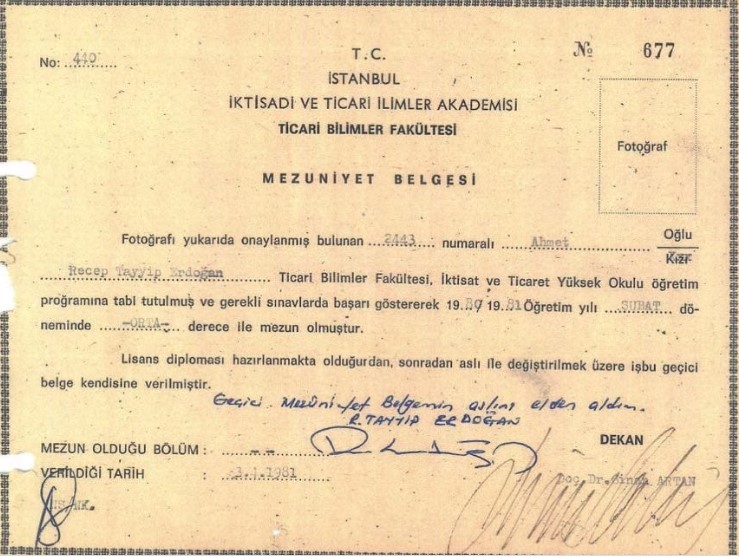 No: 440
T.C.
№ 677
İSTANBUL
İKTİSADİ VE TİCARİ İLİMLER AKADEMİSİ
TİCARİ BİLİMLER FAKÜLTESİ
Fotoğraf
MEZUNİYET BELGESİ
Fotoğrafı yukarıda onaylanmış bulunan 2443 numaralı Ahmet Oğlu
Kızı
Recep Tayyip Erdoğan Ticari Bilimler Fakültesi, İktisat ve Ticaret Yüksek Okulu öğretim
programına tabi tutulmuş ve gerekli sınavlarda başarı göstererek 19 80/19 81 Öğretim yılı ŞUBAT dö-
neminde -ORTA- derece ile mezun olmuştur.
Lisans diploması hazırlanmakta olduğundan, sonradan aslı ile değiştirilmek üzere işbu geçici
belge kendisine verilmiştir.
Geçici Mezuniyet Belgemin aslını elden aldım.
R. TAYYİP ERDOĞAN
MEZUN OLDUĞU BÖLÜM : --
DEKAN
VERİLDİĞİ TARİH : 1981
Doç Dr. Sinan ARTAN